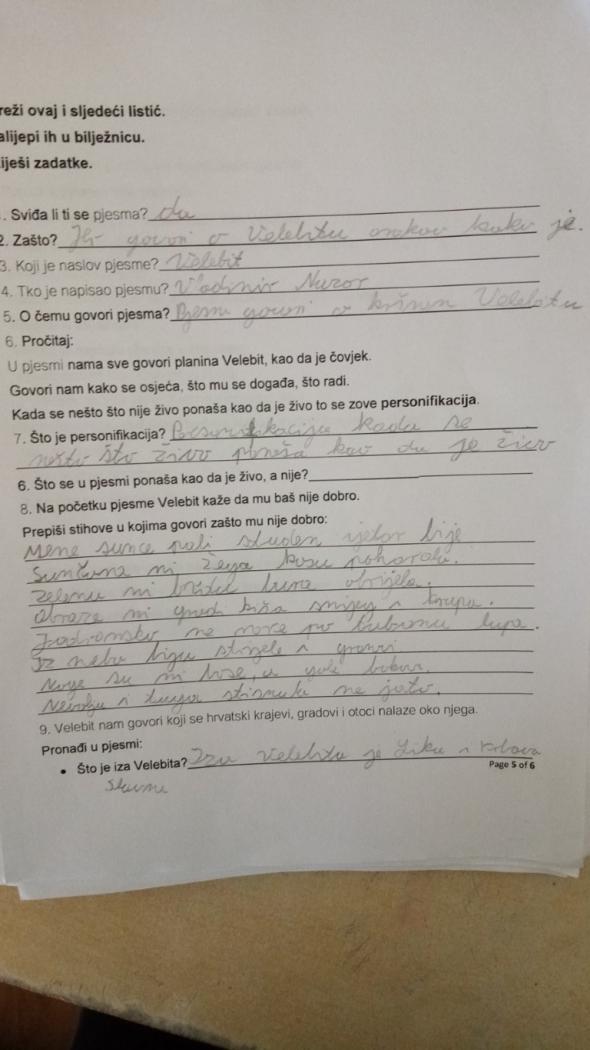 reži ovaj i sljedeći listić.
alijepi ih u bilježnicu.
iješi zadatke.
. Sviđa li ti se pjesma? da
2. Zašto? govori o Velebitu onakav kakav je.
3. Koji je naslov pjesme? Velebit
4. Tko je napisao pjesmu? Vladimir Nazor
5. O čemu govori pjesma? govori o Velebitu
6. Pročitaj:
U pjesmi nama sve govori planina Velebit, kao da je čovjek.
Govori nam kako se osjeća, što mu se događa, što radi.
Kada se nešto što nije živo ponaša kao da je živo to se zove personifikacija.
7. Što je personifikacija? kada se
nešto što živo ponaša kao da je živo
6. Što se u pjesmi ponaša kao da je živo, a nije?
8. Na početku pjesme Velebit kaže da mu baš nije dobro.
Prepiši stihove u kojima govori zašto mu nije dobro:
Mene sunce pali studen vjetar bije
Sunčana mi žega kosu pohorala.
zelenu mi bura obrijala.
Obraze mi kiša snijeg i krupa.
Jadransko me more po lupa.
Iz neba bigu strijele i gromovi
Noge su mi bose, a
Nevolja i tuga stisnula me jato.
9. Velebit nam govori koji se hrvatski krajevi, gradovi i otoci nalaze oko njega.
Pronađi u pjesmi:
• Što je iza Velebita? Iza Velebita je Lika i Krbava
slavna
Page 5 of 6